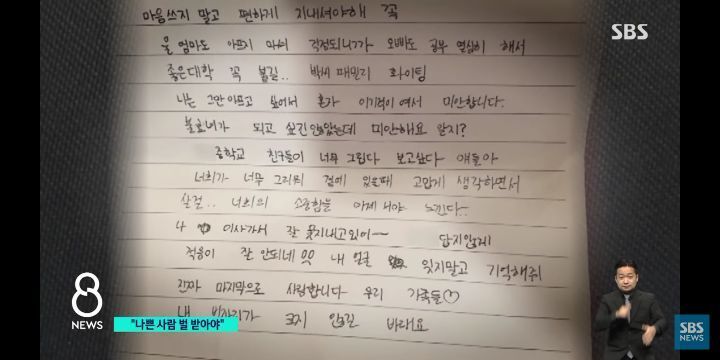 마음쓰지 말고 편하게 지내셔야해 꼭
울 엄마도 아프지 마시 걱정되니까 오빠도 공부 열심히 해서
좋은대학 꼭 붙길.. 박씨 패밀리 화이팅
나는 그만아프고 싶어서 혼자 이기적이여서 미안합니다.
불효녀가 되고 싶진 않았는데 미안해요 알지?
중학교 친구들이 너무 그립다 보고싶다 얘들아
너희가 너무 그리워 곁에 있을때 고맙게 생각하면서
살걸.. 너희의 소중함을 이제서야 느낀다..
나 이사가서 잘 못지내고있어~ 답지않게
적응이 잘 안되네 내 얼굴 잊지말고 기억해줘
진짜 마지막으로 사랑합니다 우리 가족들♡
내 빈자리가 크지 않길 바래요
SBS
8
NEWS
"나쁜 사람 벌 받아야"
SBS
NEWS